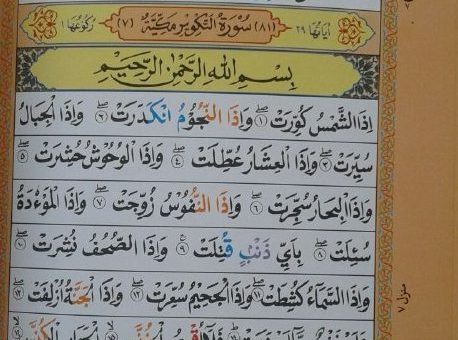 اٰيَاتُهَا ٢٩ (٨١) سُوْرَةُ التَّكْوِيْرِ مَكِّيَّةٌ (٧) رُكُوْعُهَا ١
بِسْمِ اللهِ الرَّحْمٰنِ الرَّحِيْمِ
اِذَا الشَّمْسُ كُوِّرَتْ ۙ ١ وَاِذَا النُّجُوْمُ انْكَدَرَتْ ۙ ٢ وَاِذَا الْجِبَالُ
سُيِّرَتْ ۙ ٣ وَاِذَا الْعِشَارُ عُطِّلَتْ ۙ ٤ وَاِذَا الْوُحُوْشُ حُشِرَتْ ۙ ٥
وَاِذَا الْبِحَارُ سُجِّرَتْ ۙ ٦ وَاِذَا النُّفُوْسُ زُوِّجَتْ ۙ ٧ وَاِذَا الْمَوْءٗدَةُ
سُئِلَتْ ۙ ٨ بِاَيِّ ذَنْۢبٍ قُتِلَتْ ۚ ٩ وَاِذَا الصُّحُفُ نُشِرَتْ ۙ ١٠
وَاِذَا السَّمَآءُ كُشِطَتْ ۙ ١١ وَاِذَا الْجَحِيْمُ سُعِّرَتْ ۙ ١٢ وَاِذَا الْجَنَّةُ اُزْلِفَتْ ۙ ١٣
منزل ٧